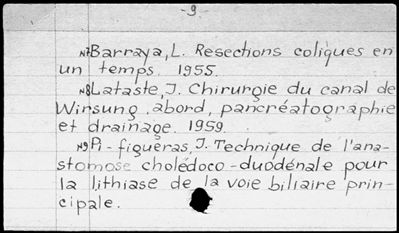 - 9 -
N7 Barraya, L. Resections coliques en
un temps. 1955.
N8 Lataste, J. Chirurgie du canal de
Wirsung, abord, pancréatographie
et drainage. 1959.
N9 Pi-figueras, J. Technique de l'ana-
stomose cholédoco-duodénale pour
la lithiase de la voie biliaire prin-
cipale.